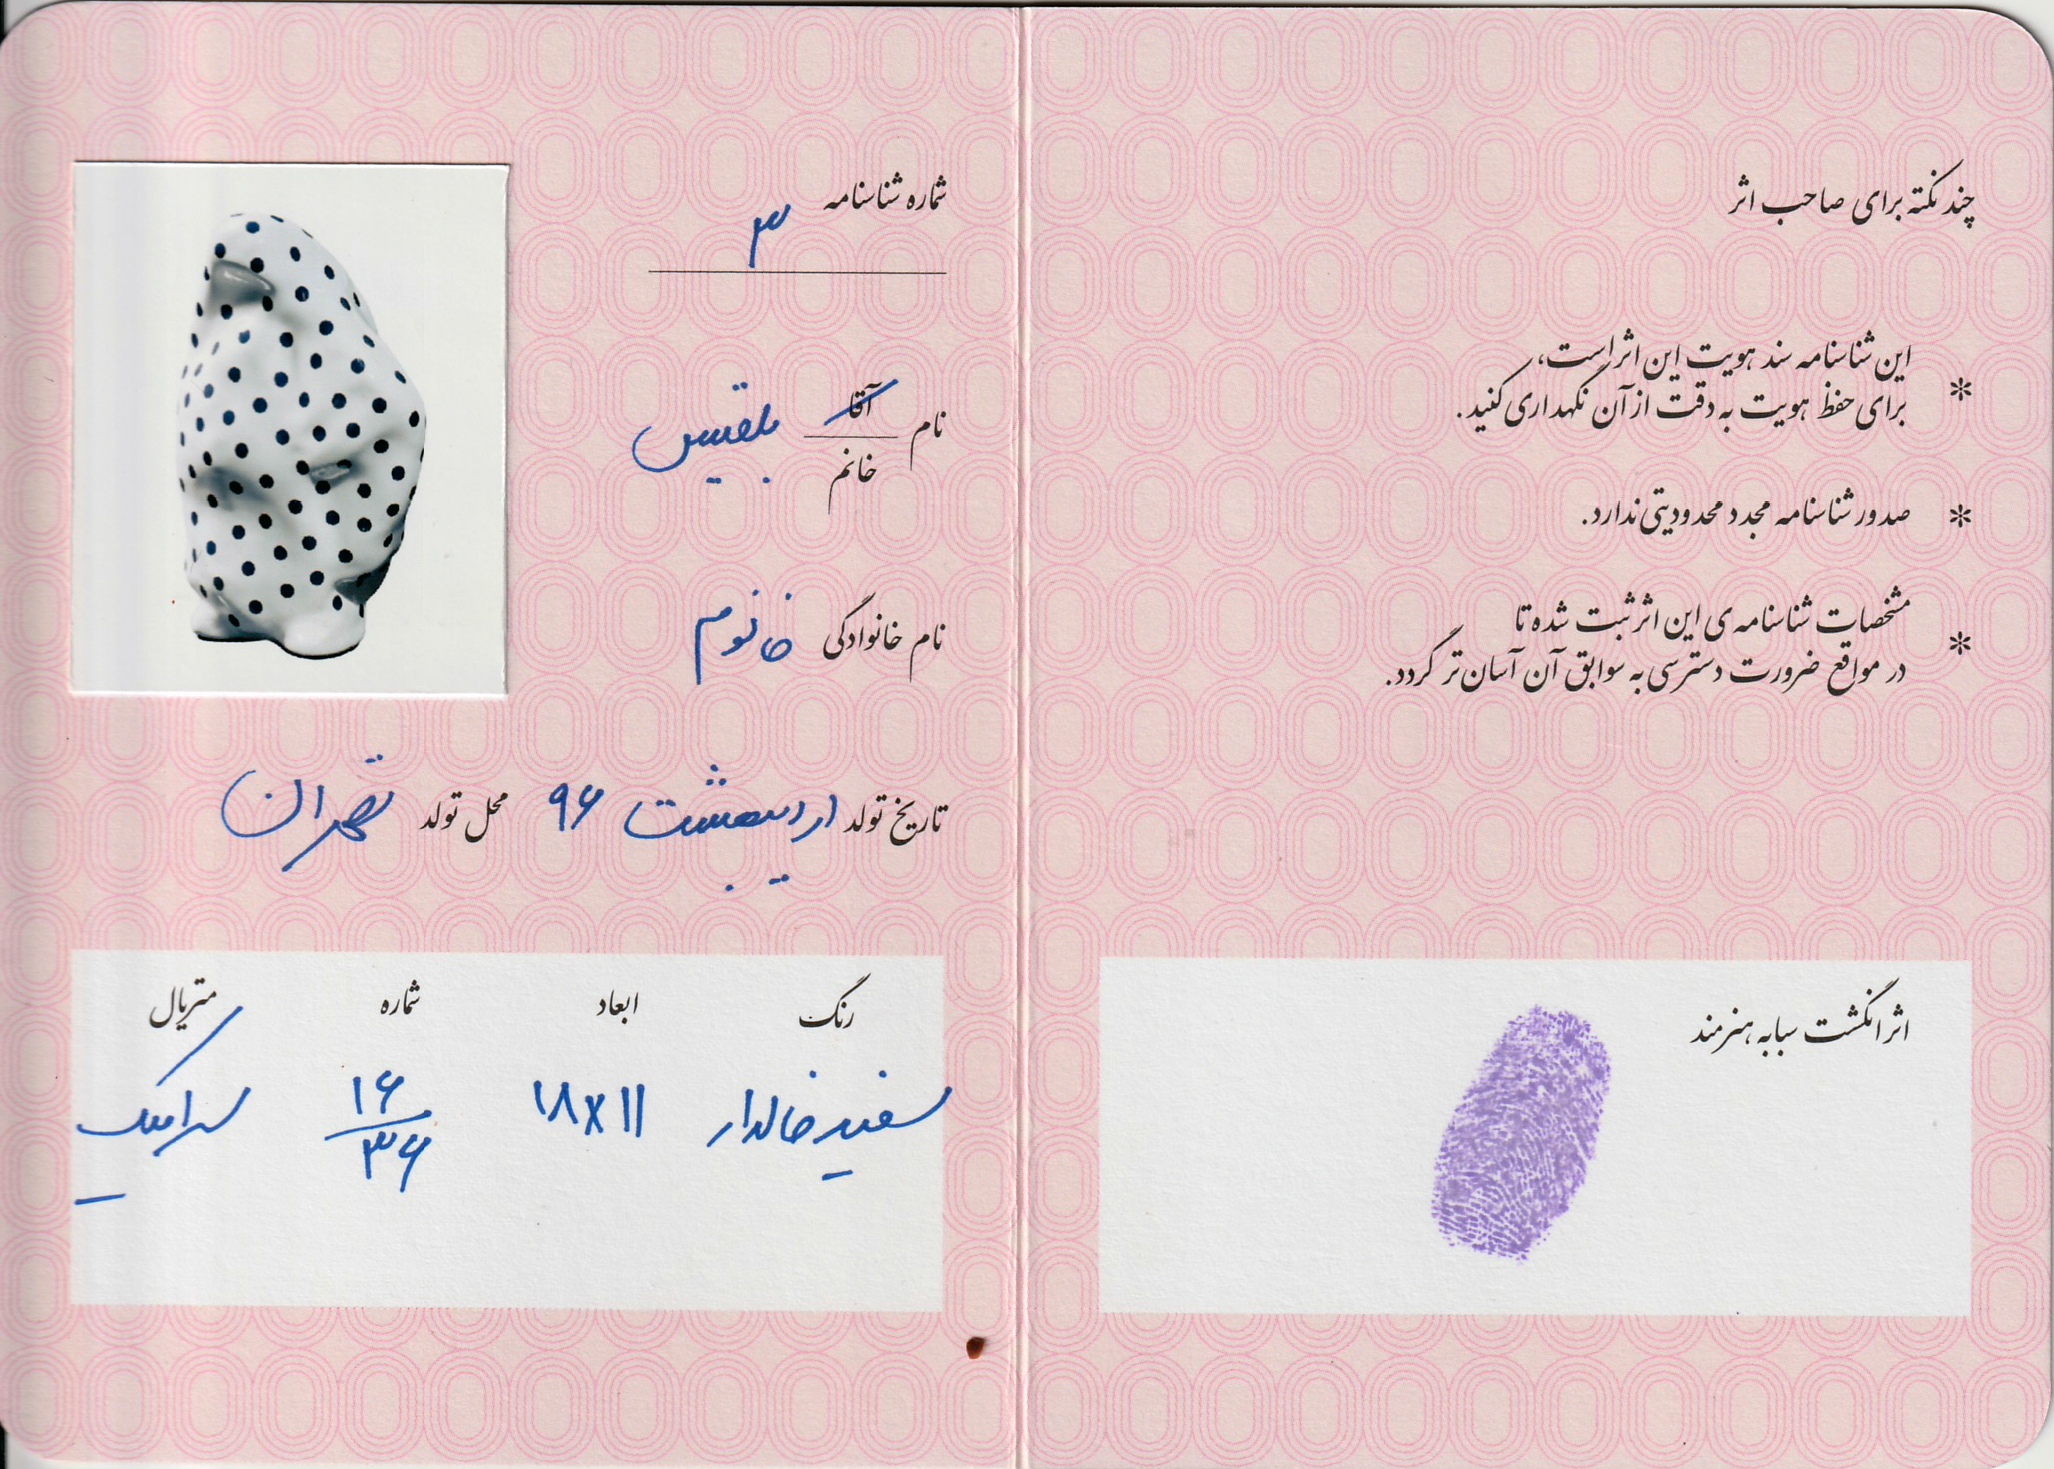 چند نکته برای صاحب اثر
این شناسنامه سند هویت این اثر است،
برای حفظ هویت به دقت از آن نگهداری کنید.
صدور شناسنامه مجدد محدودیتی ندارد.
مشخصات شناسنامه‌ی این اثر ثبت شده تا
در مواقع ضرورت دسترسی به سوابق آن آسان‌تر گردد.
اثر انگشت سبابه هنرمند
شماره شناسنامه
۳
نام آقا بلقیس
خانم
نام خانوادگی خانوم
تاریخ تولد اردیبهشت ۹۶ محل تولد تهران
رنگ ابعاد شماره متریال
سفید خالدار ۱۸x۱۱ ۱۶/۳۶ سرامیک